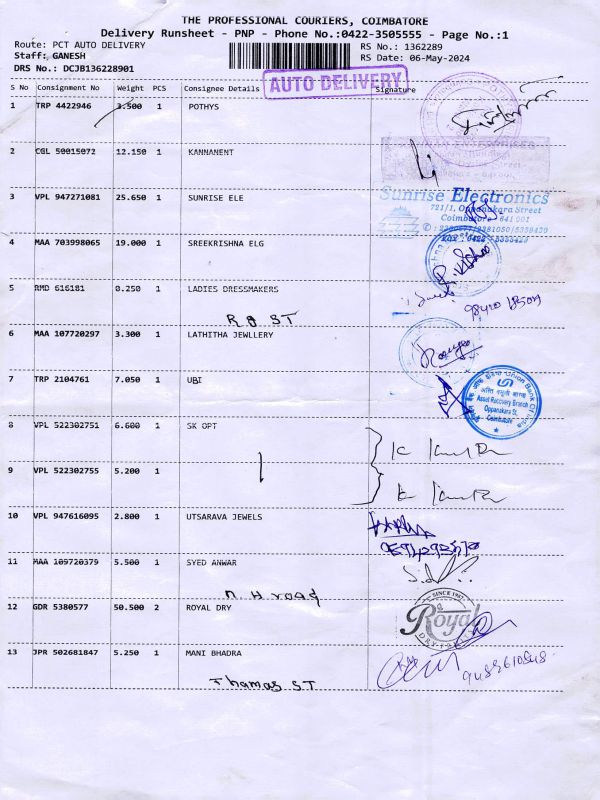 THE PROFESSIONAL COURIERS, COIMBATORE
Delivery Runsheet - PNP - Phone No.:0422-3505555 - Page No.:1
Route: PCT AUTO DELIVERY RS No.: 1362289
Staff: GANESH RS Date: 06-May-2024
DRS No.: DCJB136228901
AUTO DELIVERY
S No Consignment No Weight PCS Consignee Details Signature
1 TRP 4422946 3.500 1 POTHYS
2 CGL 50015072 12.150 1 KANNANENT
3 VPL 947271081 25.650 1 SUNRISE ELE
Sunrise Electronics
721/1, Oppanakara Street
Coimbatore - 641 001
4 MAA 703998065 19.000 1 SREEKRISHNA ELG
5 RMD 616181 0.250 1 LADIES DRESSMAKERS
R B ST
6 MAA 107720297 3.300 1 LATHITHA JEWLLERY
7 TRP 2104761 7.050 1 UBI
Union Bank Of India
Asset Recovery Branch
Oppanakara St.
Coimbatore
8 VPL 522302751 6.600 1 SK OPT
9 VPL 522302755 5.200 1
10 VPL 947616095 2.800 1 UTSARAVA JEWELS
11 MAA 109720379 5.500 1 SYED ANWAR
N H road
12 GDR 5380577 50.500 2 ROYAL DRY
SINCE
Royal
13 JPR 502681847 5.250 1 MANI BHADRA
Thamas ST